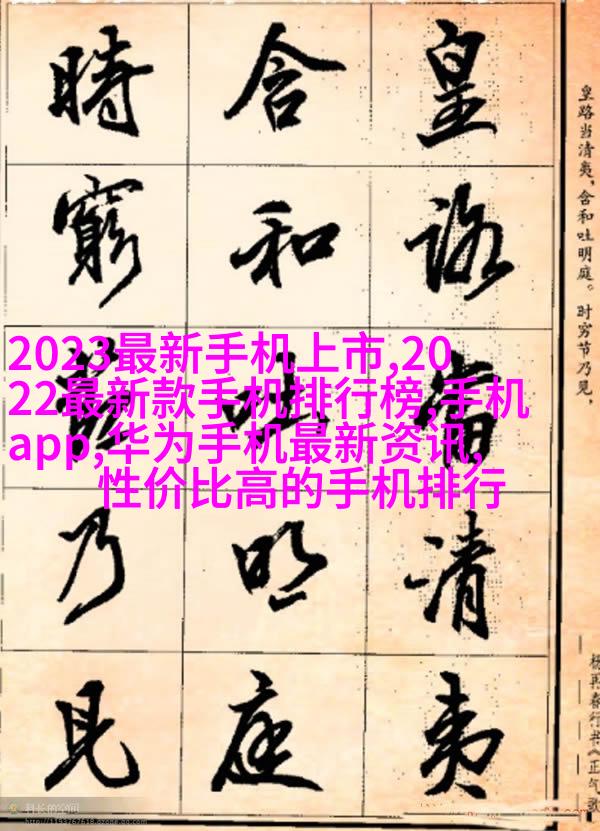 皇路當清夷
含和吐明庭
時窮
乃見
皇路当清夷，含和吐明庭。时穷节乃见，
杨再春行书《正气歌
2023最新手机上市,20
22最新款手机排行榜,手机
app,华为手机最新资讯,
性价比高的手机排行
科长的空间